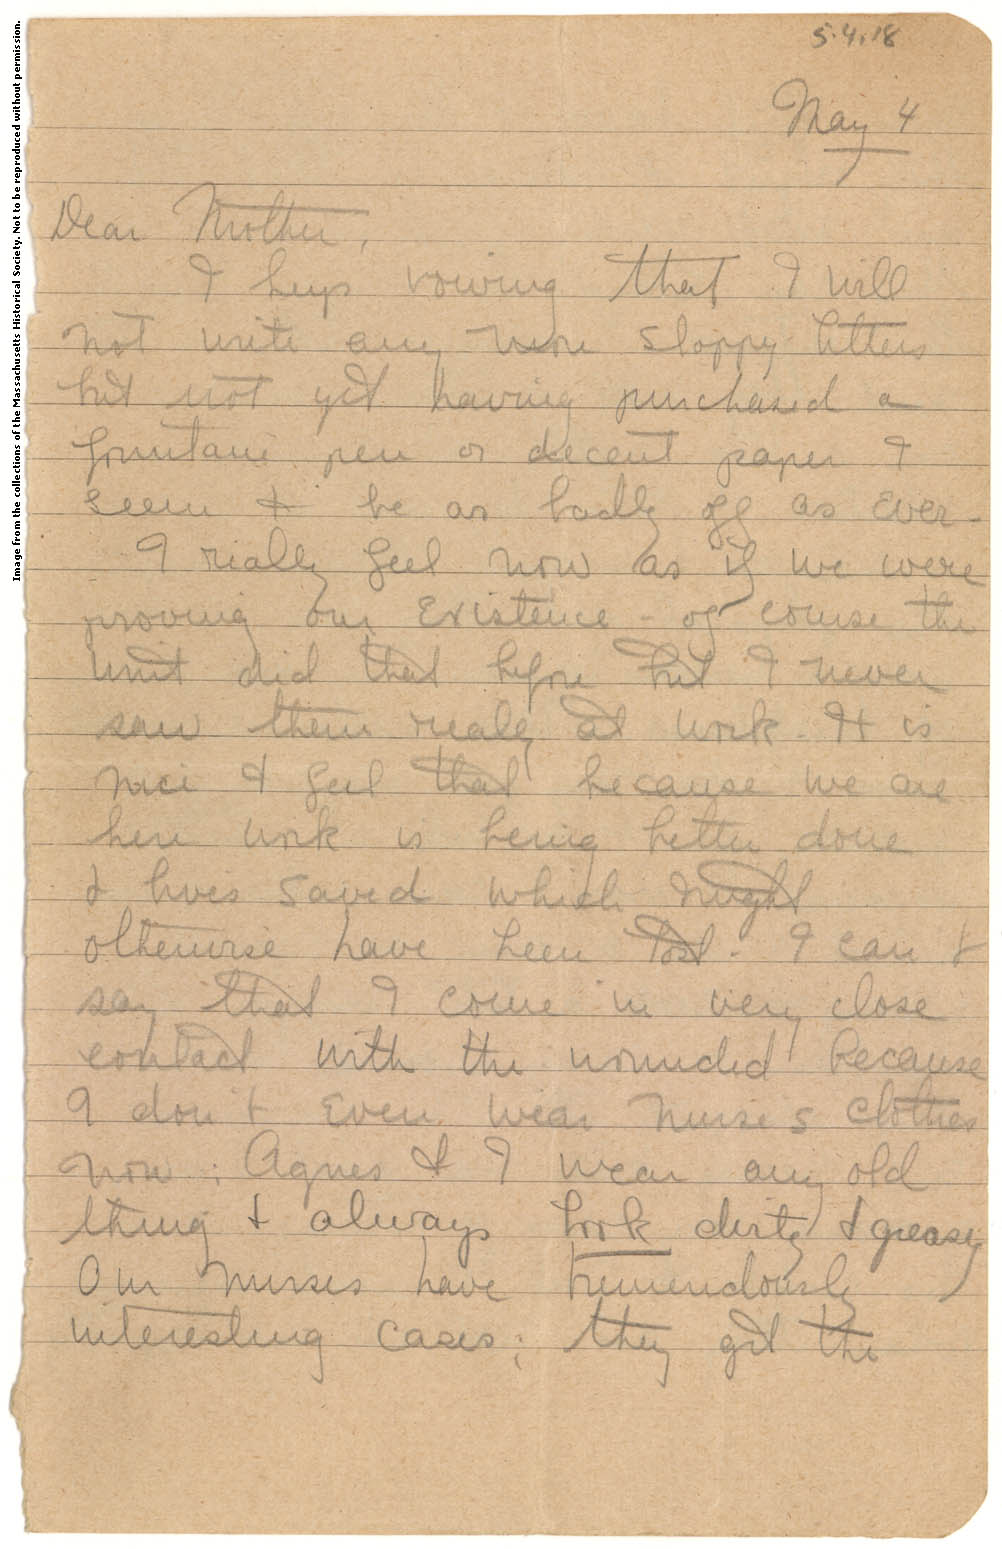 5.4.18
May 4
Dear Mother,
I keep vowing that I will
not write any more sloppy letters
but not yet having purchased a
fountain pen or decent paper I
seem to be as badly off as ever -
I really feel now as if we were
proving our existence - of course the
unit did that before but I never
saw them really at work. It is
nice to feel that because we are
here work is being better done
& lives saved which might
otherwise have been lost. I can't
say that I come in very close
contact with the wounded because
I don't even wear nurse's clothes
now; Agnes & I wear any old
thing & always look dirty & greasy
Our nurses have tremendously
interesting cases; they get the
Image from the collections of the Massachusetts Historical Society. Not to be reproduced without permission.